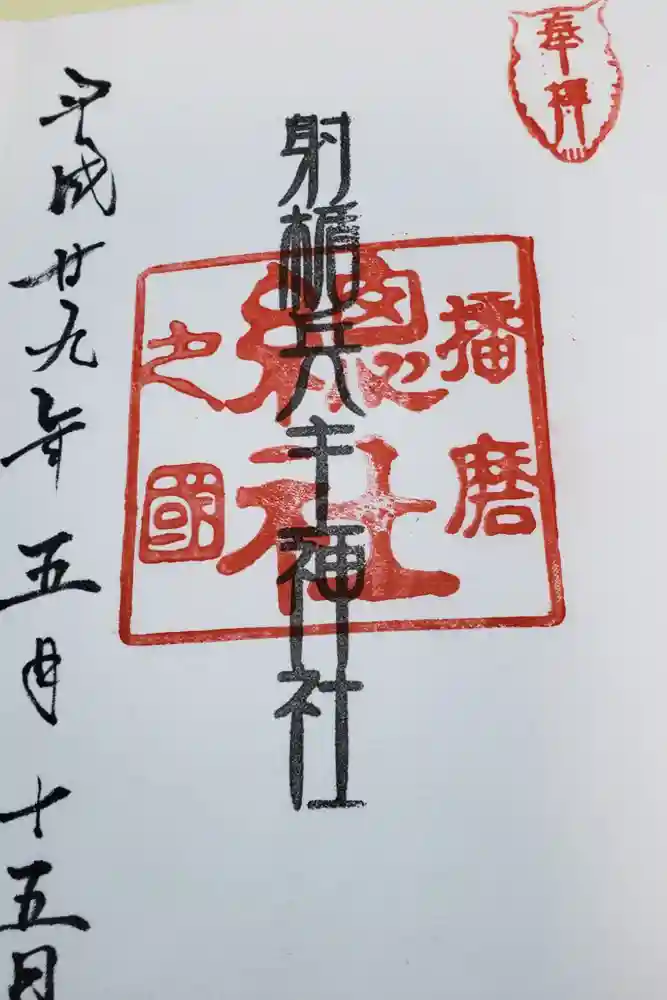 奉拝
播磨
總社
之國
射楯兵主神社
平成廿九年五月十五日